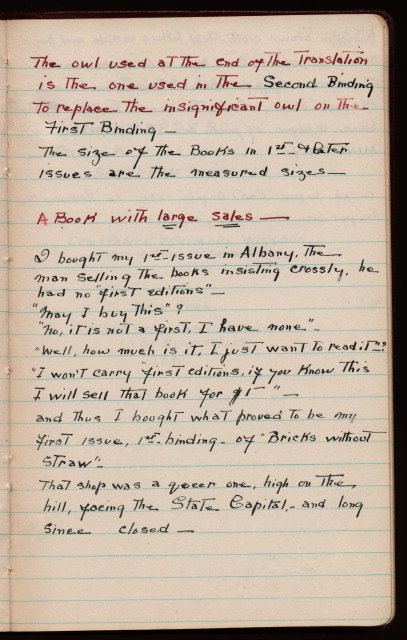 The owl used at the end of the Translation
is the one used in the Second Binding
to replace the insignificant owl on the
First Binding —
The size of the Books in 1st & later
issues are the measured sizes —
A Book with large sales —
I bought my 1st issue in Albany, the
man selling the books insisting crossly, he
had no "first editions" —
"May I buy this"?
"No, it is not a first, I have none" -
"Well, how much is it, I just want to read it"?
"I won't carry first editions, if you know this
I will sell that book for $1—" —
and thus I bought what proved to be my
first issue, 1st binding - of "Bricks without
Straw" -
That shop was a queer one, high on the
hill, facing the State Capital, - and long
since closed —